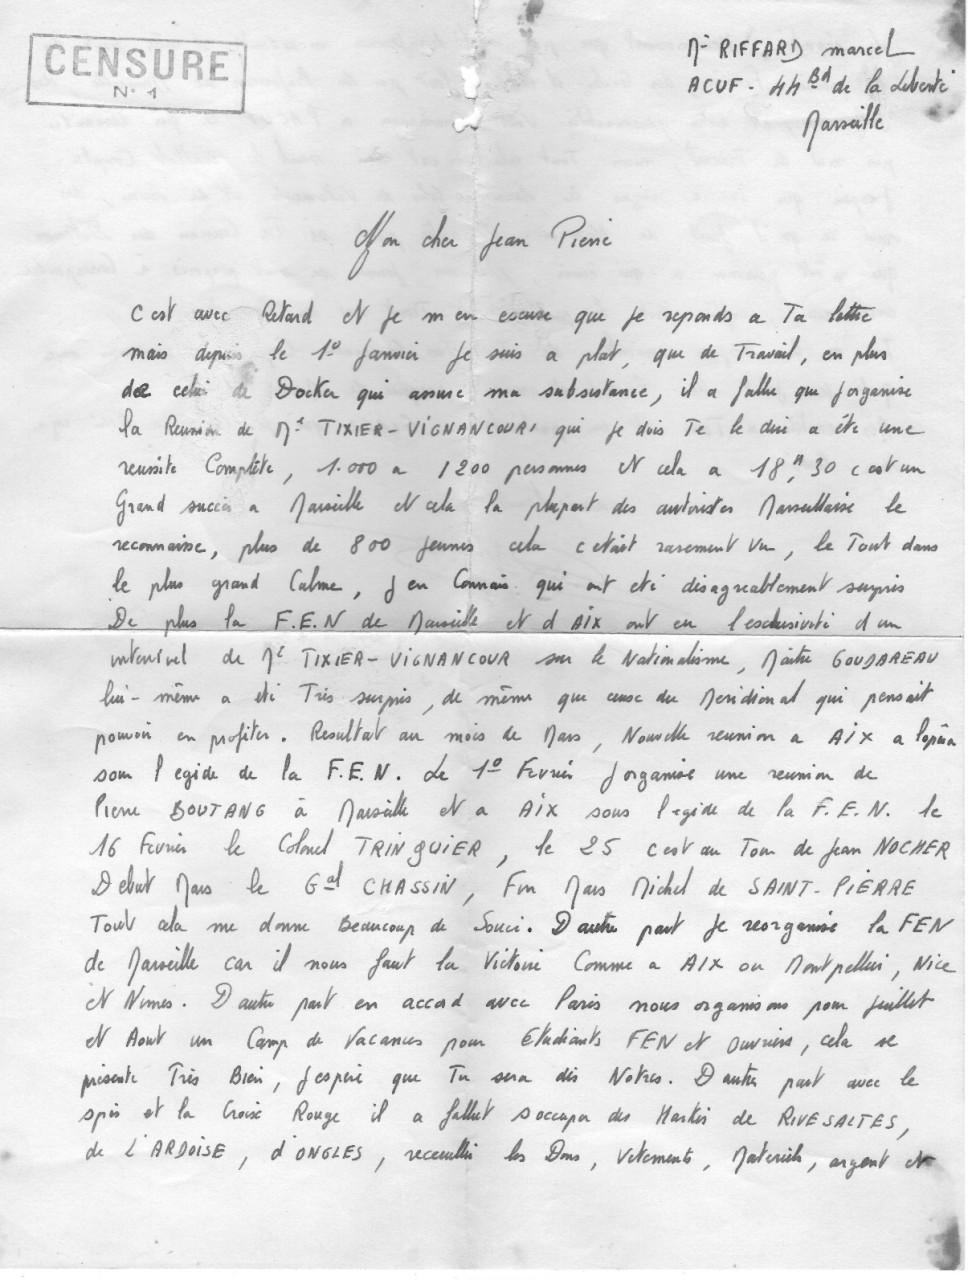 CENSURE
N° 1
Mr RIFFARD marcel
ACUF - 44 Bd de la Liberté
Marseille
Mon cher Jean Pierre
C est avec Retard et Je m en excuse que je reponds a Ta lettre
mais depuis le 1° Janvier Je suis a plat, que de Travail, en plus
de celui de Docker qui assure ma subsistance, il a fallu que j organise
la Reunion de Mr TIXIER-VIGNANCOUR, qui je dois Te le dire a été une
reussite Complète, 1.000 a 1200 personnes et cela a 18H,30 c est un
Grand succès a Marseille et cela la plupart des autorites Marseillaise le
reconnaisse, plus de 800 jeunes cela c etait rarement vu, le Tout dans
le plus grand Calme, J en Connais qui ont eté disagreablement surpris
De plus la F.E.N de Marseille et d AIX ont eu l'exclusivité d un
de Mr TIXIER-VIGNANCOUR sur le Nationalisme, Maitre GOUDAREAU
lui-même a eté Très surpris, de même que ceux du Meridional qui pensait
pouvoir en profiter. Resultat au mois de Mars, Nouvelle reunion a AIX a l'opéra
sous l egide de la F.E.N. Le 1° Fevrier J organise une reunion de
Pierre BOUTANG à Marseille et a AIX sous l'egide de la F.E.N. le
16 Fevrier le Colonel TRINQUIER, le 25 c est au Tour de Jean NOCHER
Debut Mars le Gal CHASSIN, Fin Mars Michel de SAINT-PIERRE
Tout cela me donne Beaucoup de Souci. D autre part Je reorganise la FEN
de Marseille car il nous faut la Victoire Comme a AIX ou Montpellier, Nice
et Nimes. D autre part en accord avec Paris nous organisons pour Juillet
et Aout un Camp de Vacances pour Etudiants FEN et Ouvriers, cela se
présente Très Bien, J espère que Tu sera dès Notres. D autre part avec le
et la Croix Rouge il a fallut s occuper des Harkis de RIVESALTES,
de L'ARDOISE, d'ONGLES, receuillir les Dons, Vetements, Materiels, argent et